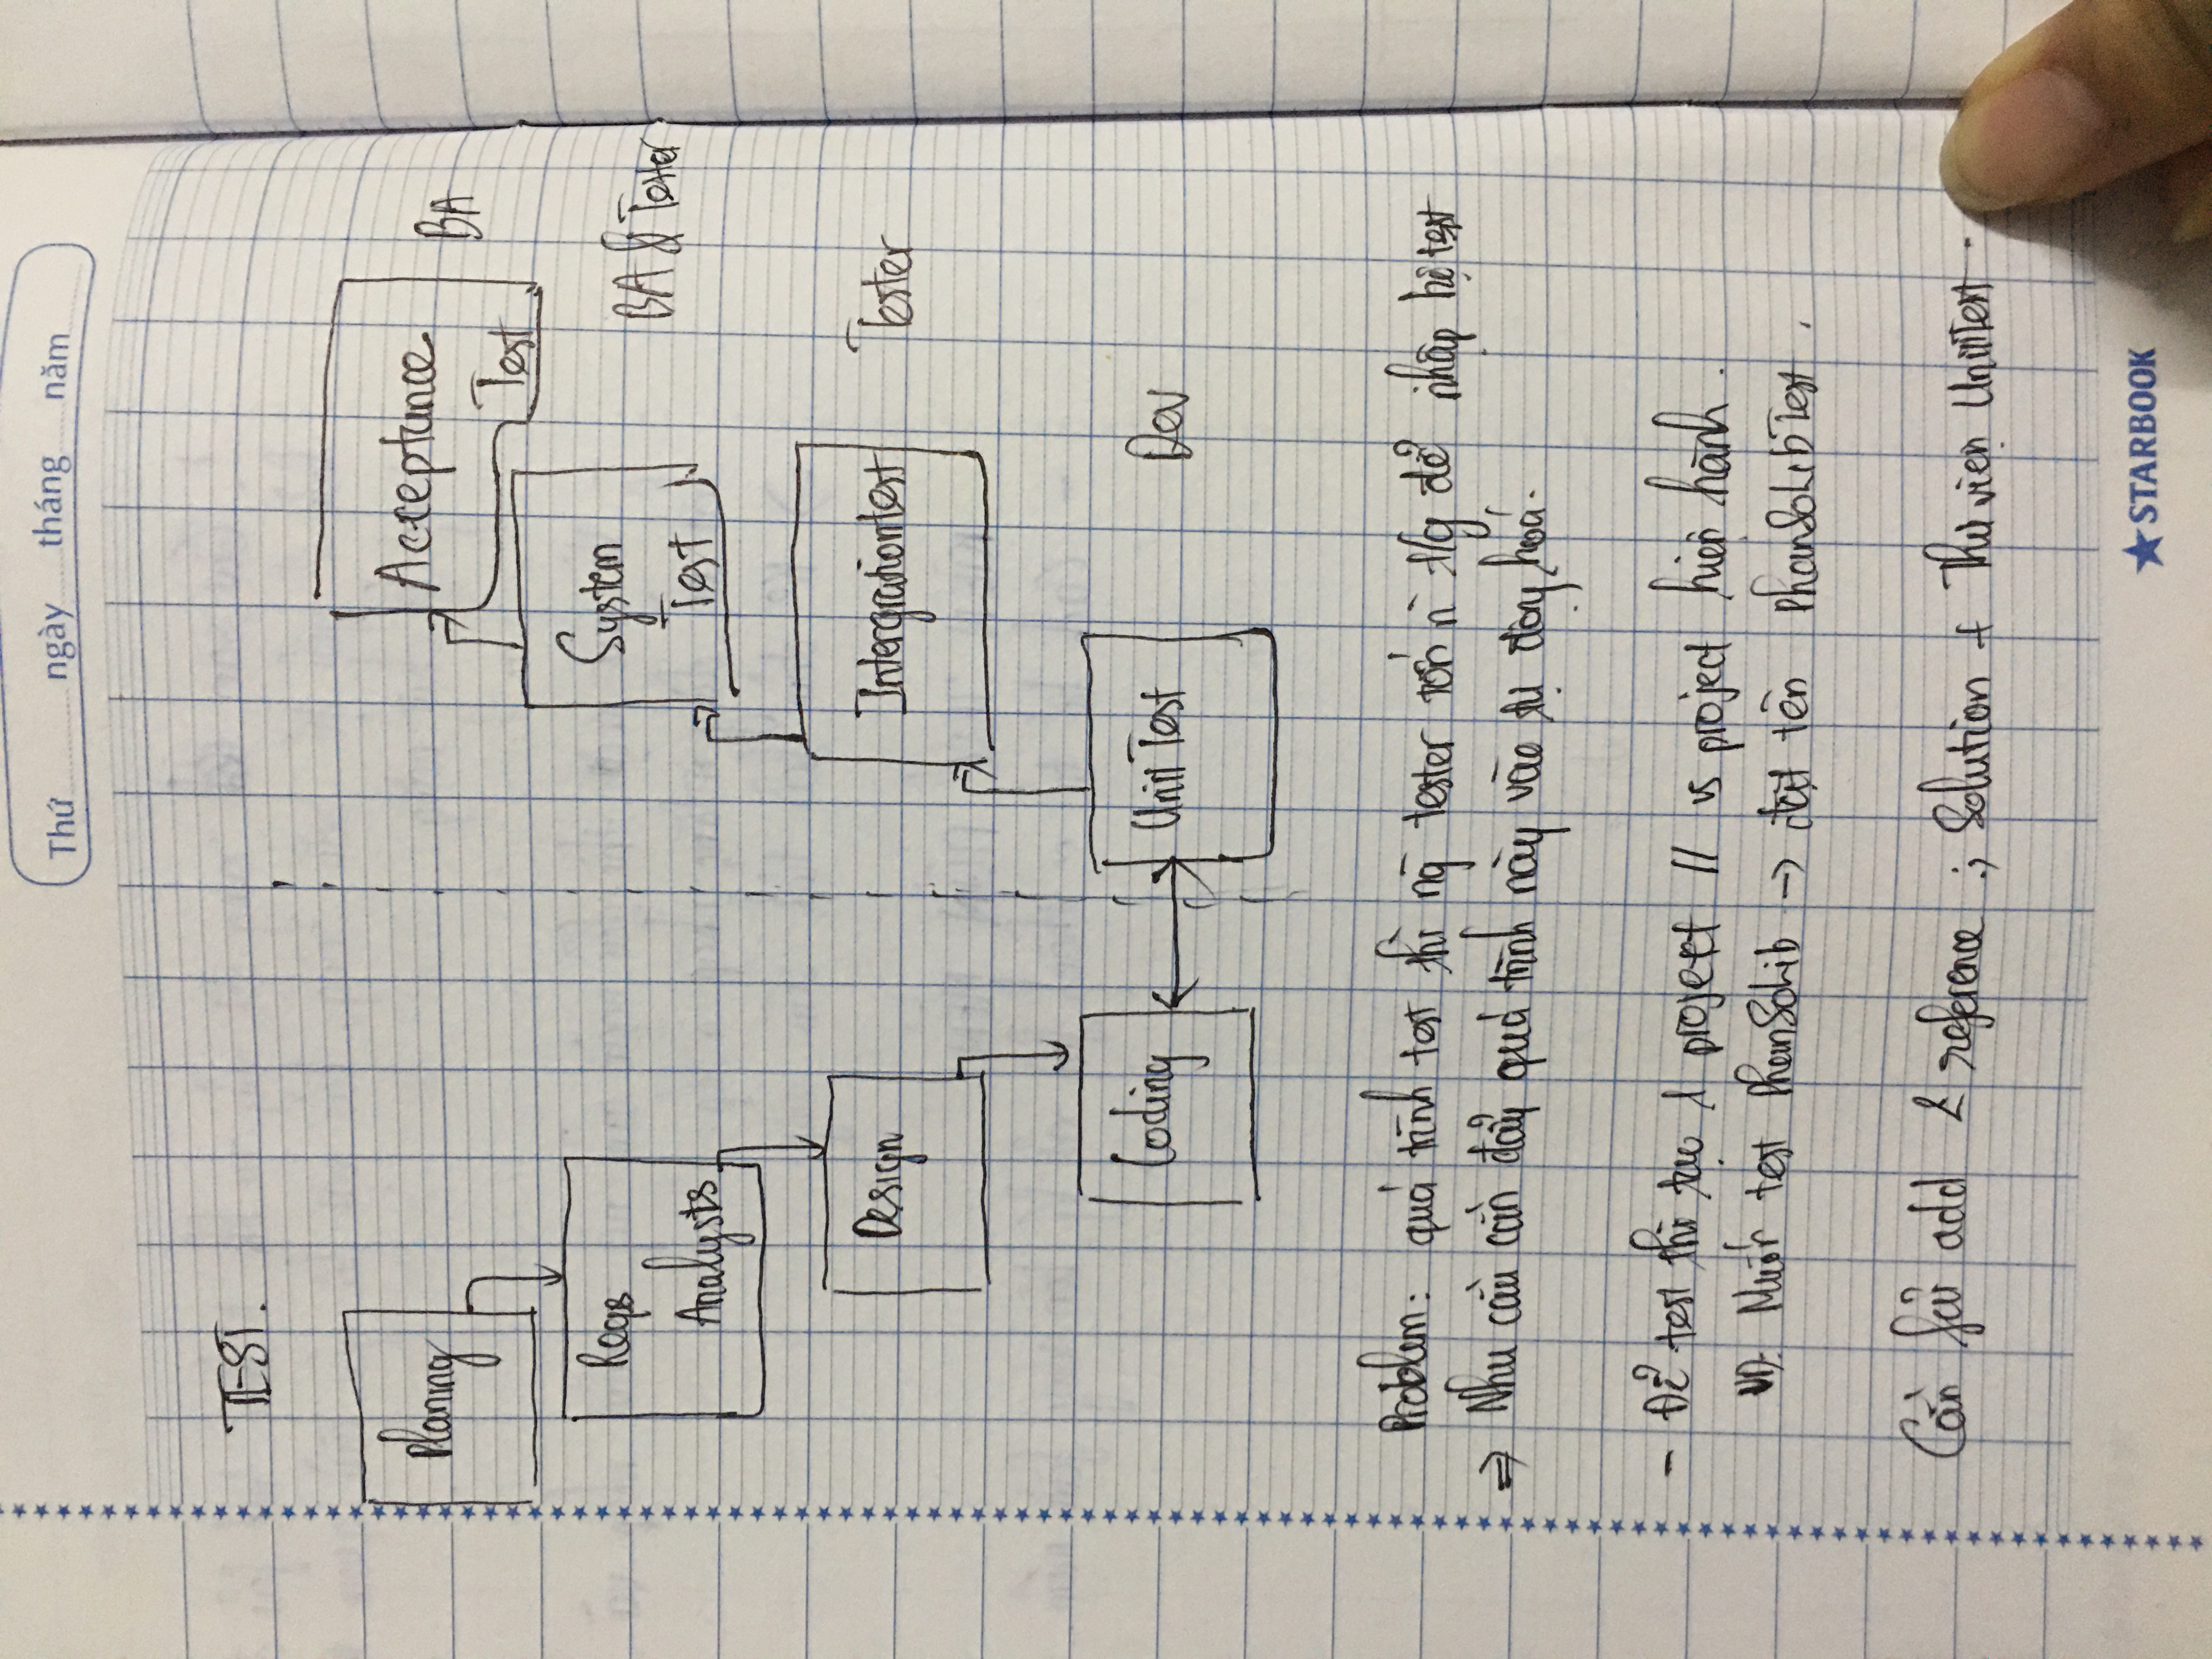 Thứ ngày tháng năm
TEST.
Planing
Acceptance
Test
BA
Reqs
Analysts
System
Test
BA & Tester
Design
Intergrationtest
Tester
Coding
Unit Test
Dev
Problem: quá trình test thì ng tester tốn n` t/g để nhập bộ test
⇒ Nhu cầu cần đẩy quá trình này vào tự động hoá.
- Để test thì tạo 1 project // vs project hiện hành.
VD: Muốn test PhanSoLib → đặt tên PhanSoLibTest.
Cần fải add 2 reference: Solution + Thư viện UnitTest.
STARBOOK